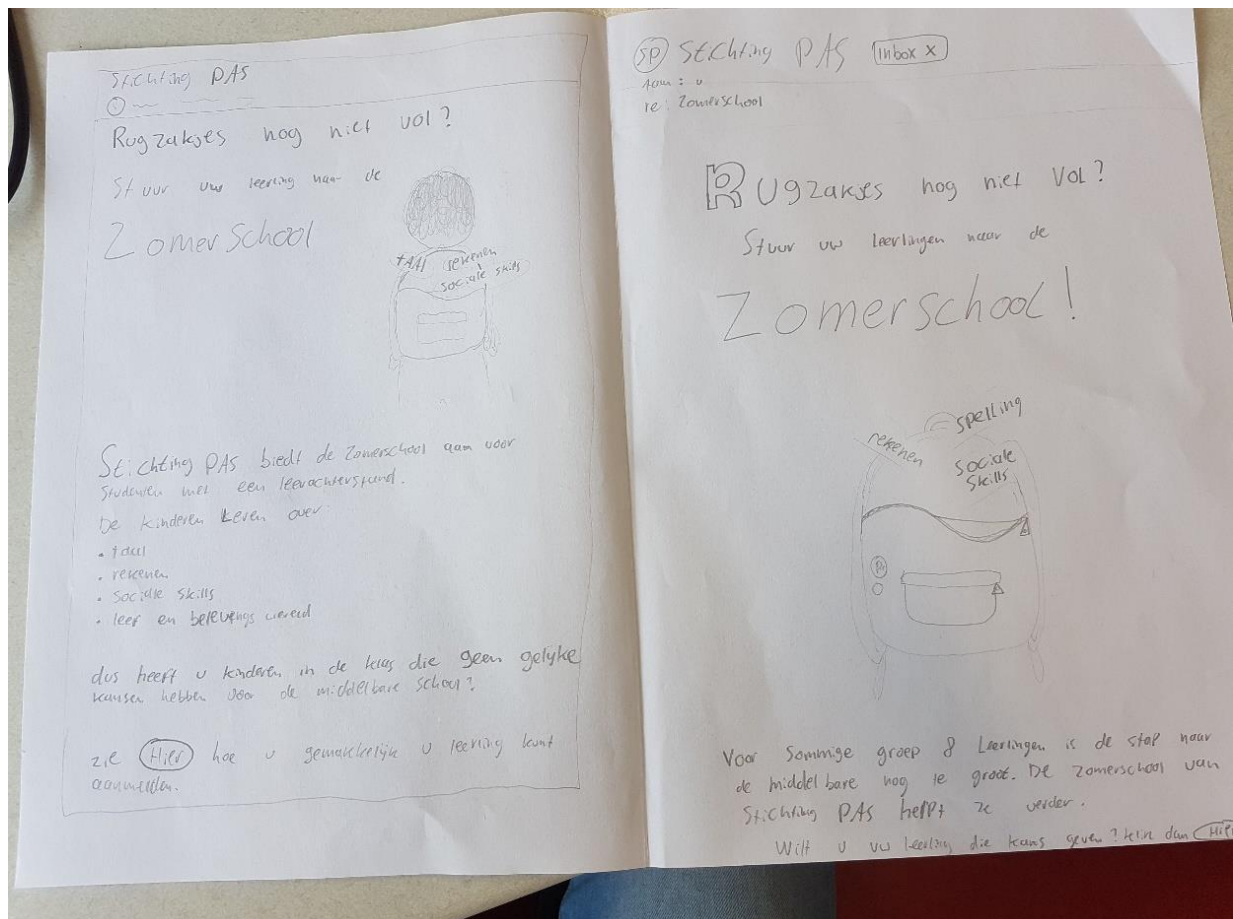 Stichting PAS
Rugzakjes nog niet vol?
Stuur uw leerling naar de
Zomerschool
taal rekenen
sociale skills
Stichting PAS biedt de Zomerschool aan voor
Studenten met een leerachterstand.
De kinderen leren over:
• taal
• rekenen
• Sociale skills
• leef en belevings wereld
dus heeft u kinderen in de klas die geen gelyke
kansen hebben voor de middelbare school?
zie Hier hoe u gemakkelijk u leerling kunt
aanmelden.
SP Stichting PAS Inbox x
Aan: u
re: Zomerschool
Rugzakjes nog niet Vol?
Stuur uw leerlingen naar de
Zomerschool!
spelling
rekenen
Sociale
Skills
Voor Sommige groep 8 Leerlingen is de stap naar
de middelbare nog te groot. De zomerschool van
Stichting PAS helpt ze verder.
Wilt u uw leerling die kans geven? klik dan Hier